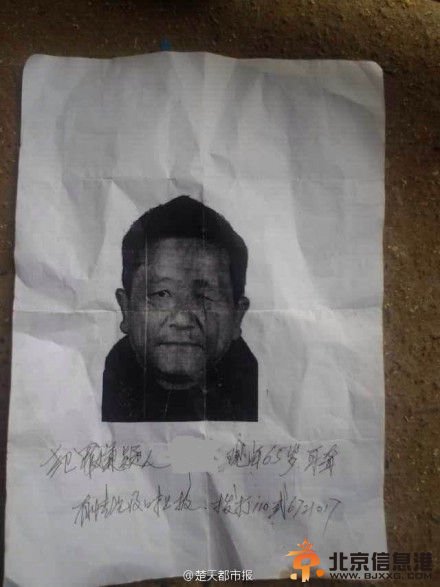 犯罪嫌疑人 现年65岁 耳聋
有情况及时上报、拨打110或6721017
@楚天都市报
北京信息港
WWW.BJXXG.COM